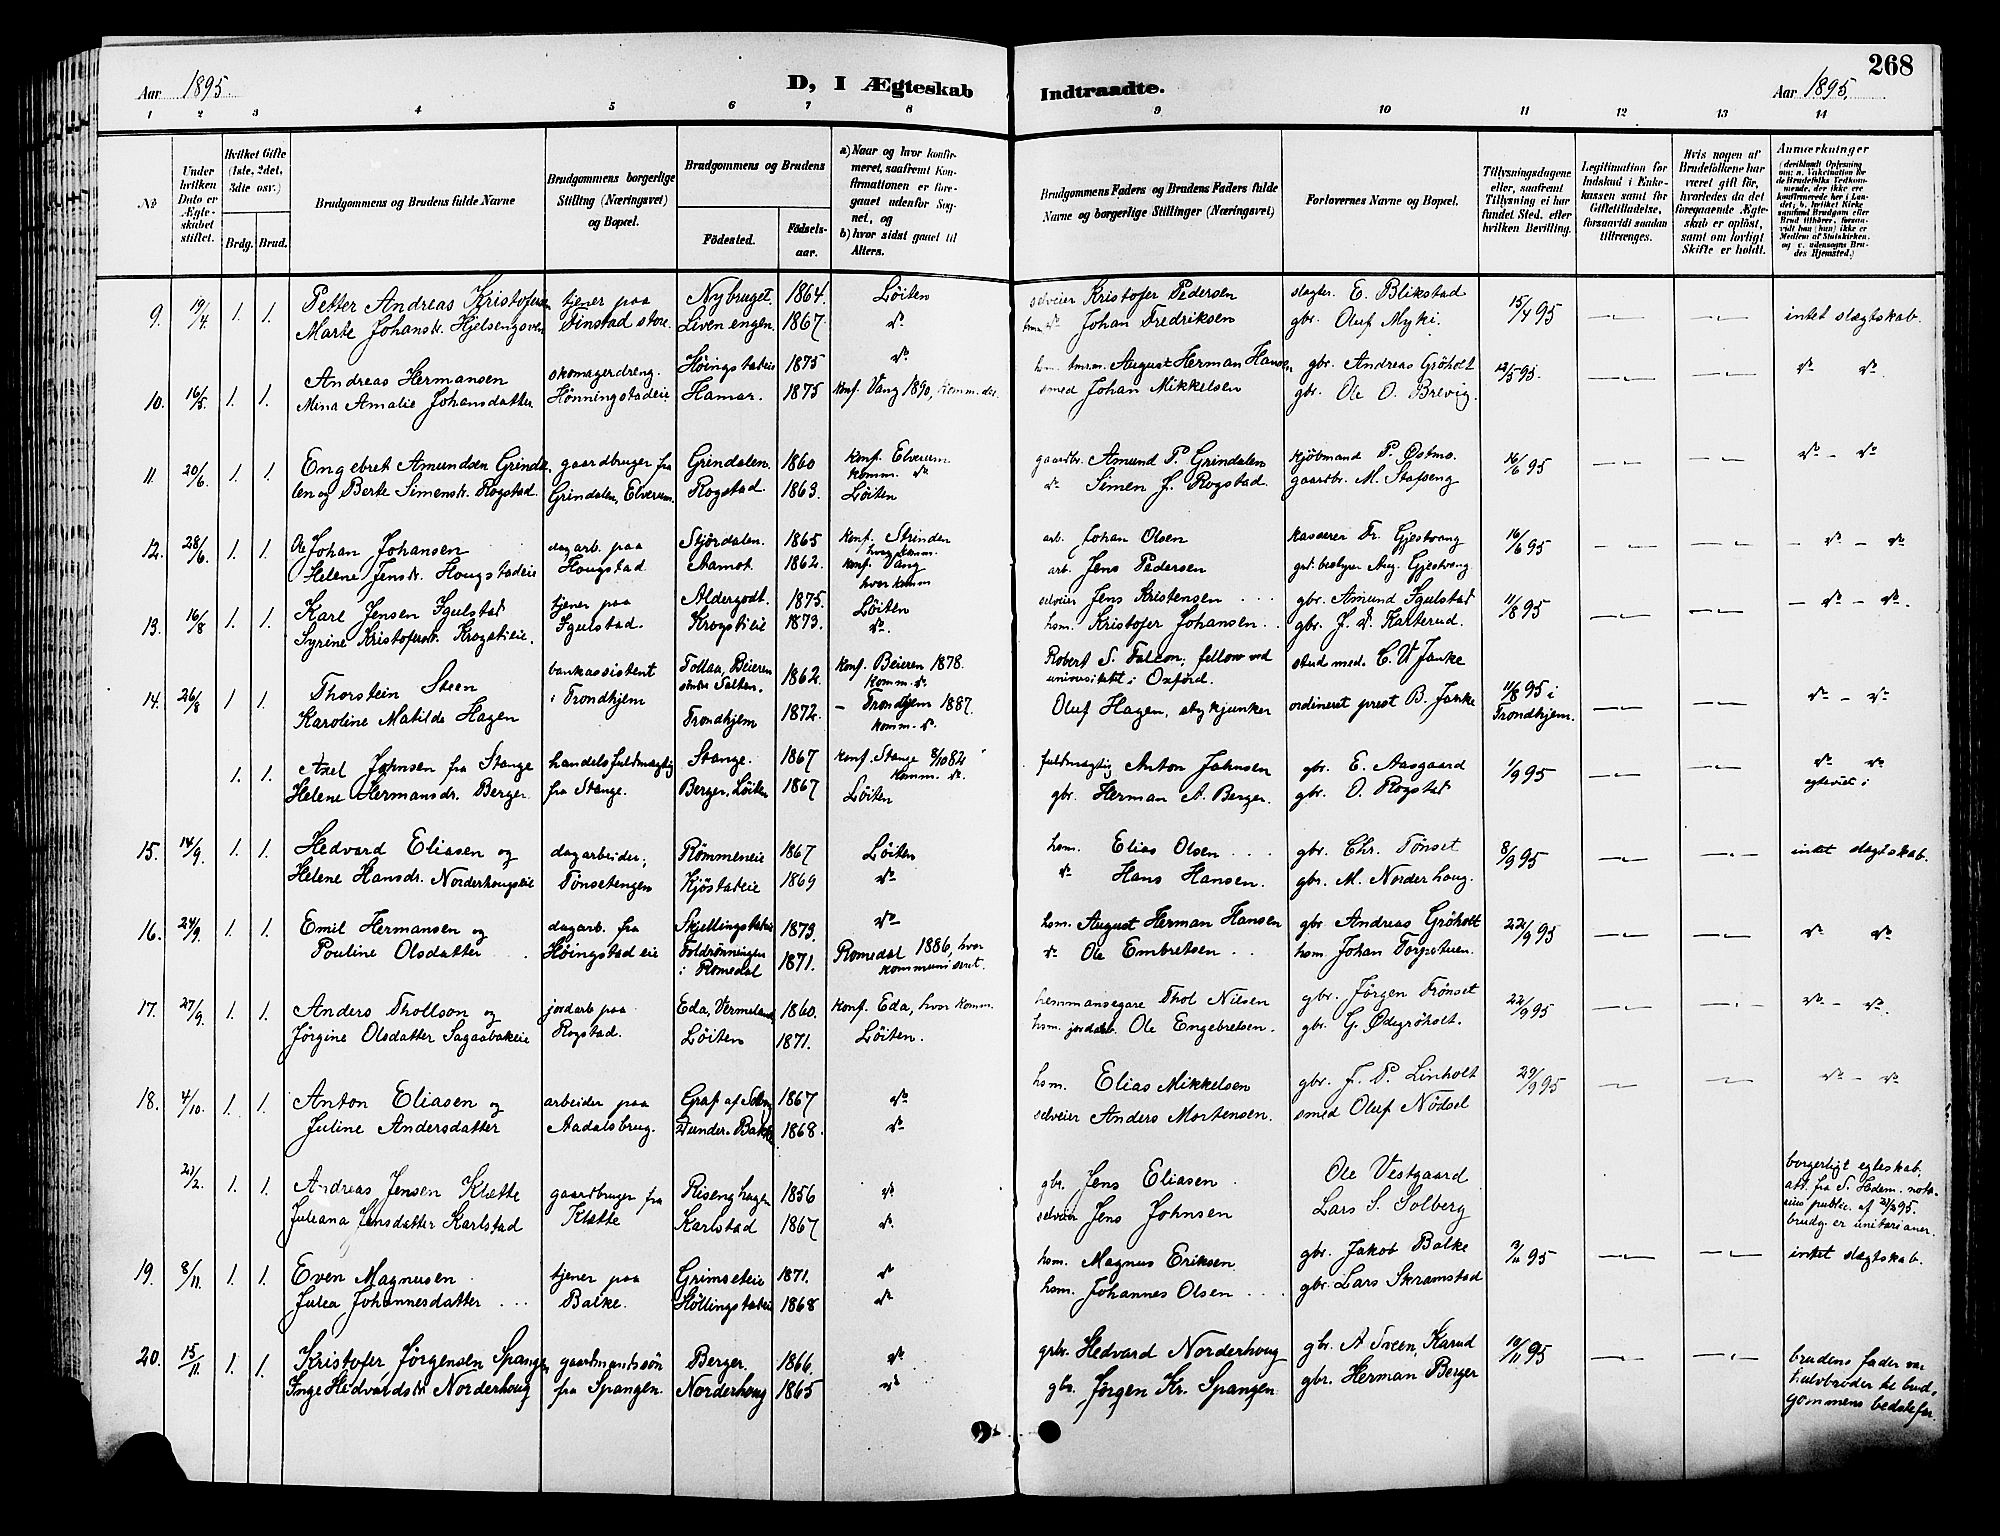 268
Aar 1895.
D, I Ægteskab
Indtraadte.
Aar 1895.
1 2 3 4 5 6 7 8 9 10 11 12 13 14
No
Under hvilken Dato er Ægteskabet stiftet.
Hvilket Gifte (1ste, 2det, 3die osv.)
Brdg. Brud.
Brudgommens og Brudens fulde Navne
Brudgommens borgerlige Stilling (Næringsvei) og Bopæl.
Brudgommens og Brudens
Födested. Födselsaar.
a) Naar og hvor konfirmeret, saafremt Konfirmationen er foregaaet udenfor Sognet, og
b) hvor sidst gaaet til Alters.
Brudgommens Faders og Brudens Faders fulde Navne og borgerlige Stillinger (Næringsvei)
Forlovernes Navne og Bopæl.
Tillysningsdagene eller, saafremt Tillysning ei har fundet Sted, efter hvilken Bevilling.
Legitimation for Indskud i Enkekassen samt for Giftetilladelse, forsaavidt saadan tiltrænges.
Hvis nogen af Brudefolkene har været gift för, hvorledes da det foregaaende Ægteskab er oplöst, samt om lovligt Skifte er holdt.
Anmærkninger
9. 19/4. 1. 1. Petter Andreas Kristofersen tjener paa Nybruget. 1864. Löiten selveier Kristofer Pedersen slagter. E. Blikstad 15/4 95 intet slægtskab.
Marte Johansdr. Hjelsengsveen Finstad store Liven engen 1867 do. Johan Fredriksen gbr. Oluf Myki.
10. 16/5. 1. 1. Andreas Hermansen skomagerdreng. Höingstadeie 1875 do. hsm. tmrm. August Herman Hansen gbr. Andreas Gröholt 12/5 95. do. do.
Mina Amalie Johansdatter Hönningstadeie Hamar. 1875 konf. Vang 1890, komm. do. smed Johan Mikkelsen gbr. Ole O. Brevig.
11. 20/6. 1. 1. Engebret Amundsen Grinda- gaardbruger fra Grindalen. 1860 konf. Elverum. komm. do. gaardbr. Amund P. Grindalen kjöbmand P. Östmo. 16/6 95 do. - do.
len og Berte Simensdr. Rogstad. Grindalen, Elverum. Rogstad. 1863. Löiten do. Simen J. Rogstad. gaardbr. M. Stafseng
12. 28/6. 1. 1. Ole Johan Johansen dagarb. paa Stjördalen. 1865 konf. Strinden hvor komm. arb. Johan Olsen kasserer Fr. Gjestvang 16/6 95 - do. - do.
Helene Jensdr. Hougstadeie Hougstad Aamot. 1862. konf. Vang hvor komm arb. Jens Pedersen grd.bestyrer Aug. Gjestvang
13. 16/8 1. 1. Karl Jensen Igulstad tjener paa Aldergodt. 1875. Löiten selveier Jens Kristensen gbr. Amund Igulstad 11/8 95 - do. - do.
Syrine Kristofersdr. Krogstieie. Igulstad. Krogstieie 1873. do. hsm. Kristofer Johansen gbr. J. A. Kasterud.
14. 26/8 1 1 Thorstein Steen bankassistent Tollaa, Beieren söndre Salten. 1862. konf. Beieren 1878. komm. do. Robert S. Falcon, fellow ved universitetet i Oxford. stud med. C. V Janke 11/8 95 i Trondhjem. do. - do.
Karoline Matilde Hagen i Trondhjem Trondhjem 1872. - Trondhjem 1887. komm. do. Oluf Hagen, stykjunker ordineret prest B. Janke
1. 1. Axel Johnsen fra Stange handelsfuldmægtig Stange. 1867 konf. Stange 8/10 82 komm. do. fuldmægtig Anton Johnsen gbr. E. Aasgaard 1/9 95 do. do.
Helene Hermansdr. Berger fra Stange. Berger, Löiten 1867 Löiten gbr. Herman A. Berger. gbr. O. Rogstad egteviet i
15. 14/9. 1. 1. Hedvard Eliasen og dagarbeider, Römmeneie 1867 Löiten hsm. Elias Olsen gbr. Chr. Tönset 8/9 95 intet slægtskab.
Helene Hansdr. Norderhougseie Tönsetengen Kjöstadeie 1869 do. do. Hans Hansen. gbr. M. Norderhoug.
16. 24/9. 1. 1. Emil Hermansen og dagarb. fra Skjellingstadeie 1873. do. hsm. August Herman Hansen gbr Andreas Gröholt 22/9 95 do. do.
Pouline Olsdatter Höingstadeie Foldrönningen i Romedal 1871. Romedal 1886, hvor kommuniceret. do. Ole Embretsen hsm. Johan Torpetuen.
17. 27/9. 1. 1. Anders Thollson og jordarb. paa Eda, Vermeland, 1860. konf. Eda, hvor komm. hemmansegare Thol Nilsen gbr. Jörgen Frönset 22/9 95 do. - do.
Jörgine Olsdatter Sagaabakeie Rogstad. Löiten 1871. Löiten. hsm. jordarb. Ole Engebretsen. gbr. G. Ödegröholt.
18. 4/10. 1. 1. Anton Eliasen og arbeider paa 1867 do. hsm. Elias Mikkelsen gbr. J. P. Linholt 29/9 95 do. - do.
Juline Andersdatter Aadalsbrug. 1868. do. selveier Anders Mortensen. smed Oluf Nödsel
21/2. 1. 1. Andreas Jensen Klætte gaardbruger fra Risenghagen 1856 do. gbr. Jens Eliasen Ole Vestgaard borgerligt egteskab.
Juliana Jensdatter Karlstad Klætte Karlstad 1867 do. selveier Jens Johnsen. Lars S. Solberg att. fra S. Hedem. notarius public. af 21/2 95. brudg. er unitarianer.
19. 8/11. 1. 1. Even Magnusen tjener paa Grimseteie 1871. do. hsm. Magnus Eriksen gbr. Jakob Balke 3/11 95 intet slægtskab.
Julea Johannesdatter Balke. Höllingstadeie 1868 do. hsm. Johannes Olsen gbr. Lars Skramstad
20. 15/11. 1. 1. Kristofer Jörgensen Spangen gaardmandssön Berger. 1866. do. grbr. Hedvard Norderhoug gbr. A Sveen, Karud 10/11 95 brudens fader var
Inge Hedvardsdr. Norderhoug fra Spangen. Norderhoug 1865 do. gbr. Jörgen Kr. Spangen gbr. Herman Berger halvbroder til brudgommens bedstefar.